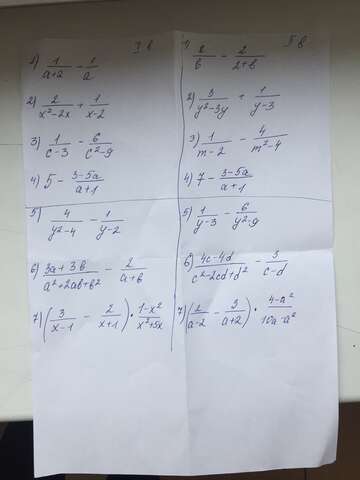 I в
1) 1/(a+2) - 1/a
2) 2/(x²-2x) + 1/(x-2)
3) 1/(c-3) - 6/(c²-9)
4) 5 - (3-5a)/(a+1)
5) 4/(y²-4) - 1/(y-2)
6) (3a+3b)/(a²+2ab+b²) - 2/(a+b)
7) (3/(x-1) - 2/(x+1)) · (1-x²)/(x²+5x)
1) 2/b - 2/(2+b)
2) 3/(y²-3y) + 1/(y-3)
3) 1/(m-2) - 4/(m²-4)
4) 7 - (3-5a)/(a+1)
5) 1/(y-3) - 6/(y²-9)
6) (4c-4d)/(c²-2cd+d²) - 3/(c-d)
7) (2/(a-2) - 3/(a+2)) · (4-a²)/(10a-a²)